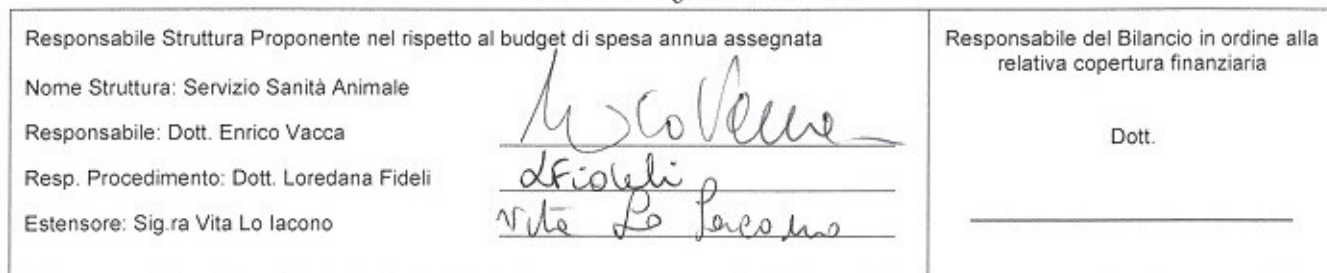 Responsabile Struttura Proponente nel rispetto al budget di spesa annua assegnata
Nome Struttura: Servizio Sanità Animale
Responsabile: Dott. Enrico Vacca
Resp. Procedimento: Dott. Loredana Fideli
LFideli
Estensore: Sig.ra Vita Lo Iacono
Vita Lo Iacono
Responsabile del Bilancio in ordine alla
relativa copertura finanziaria
Dott.